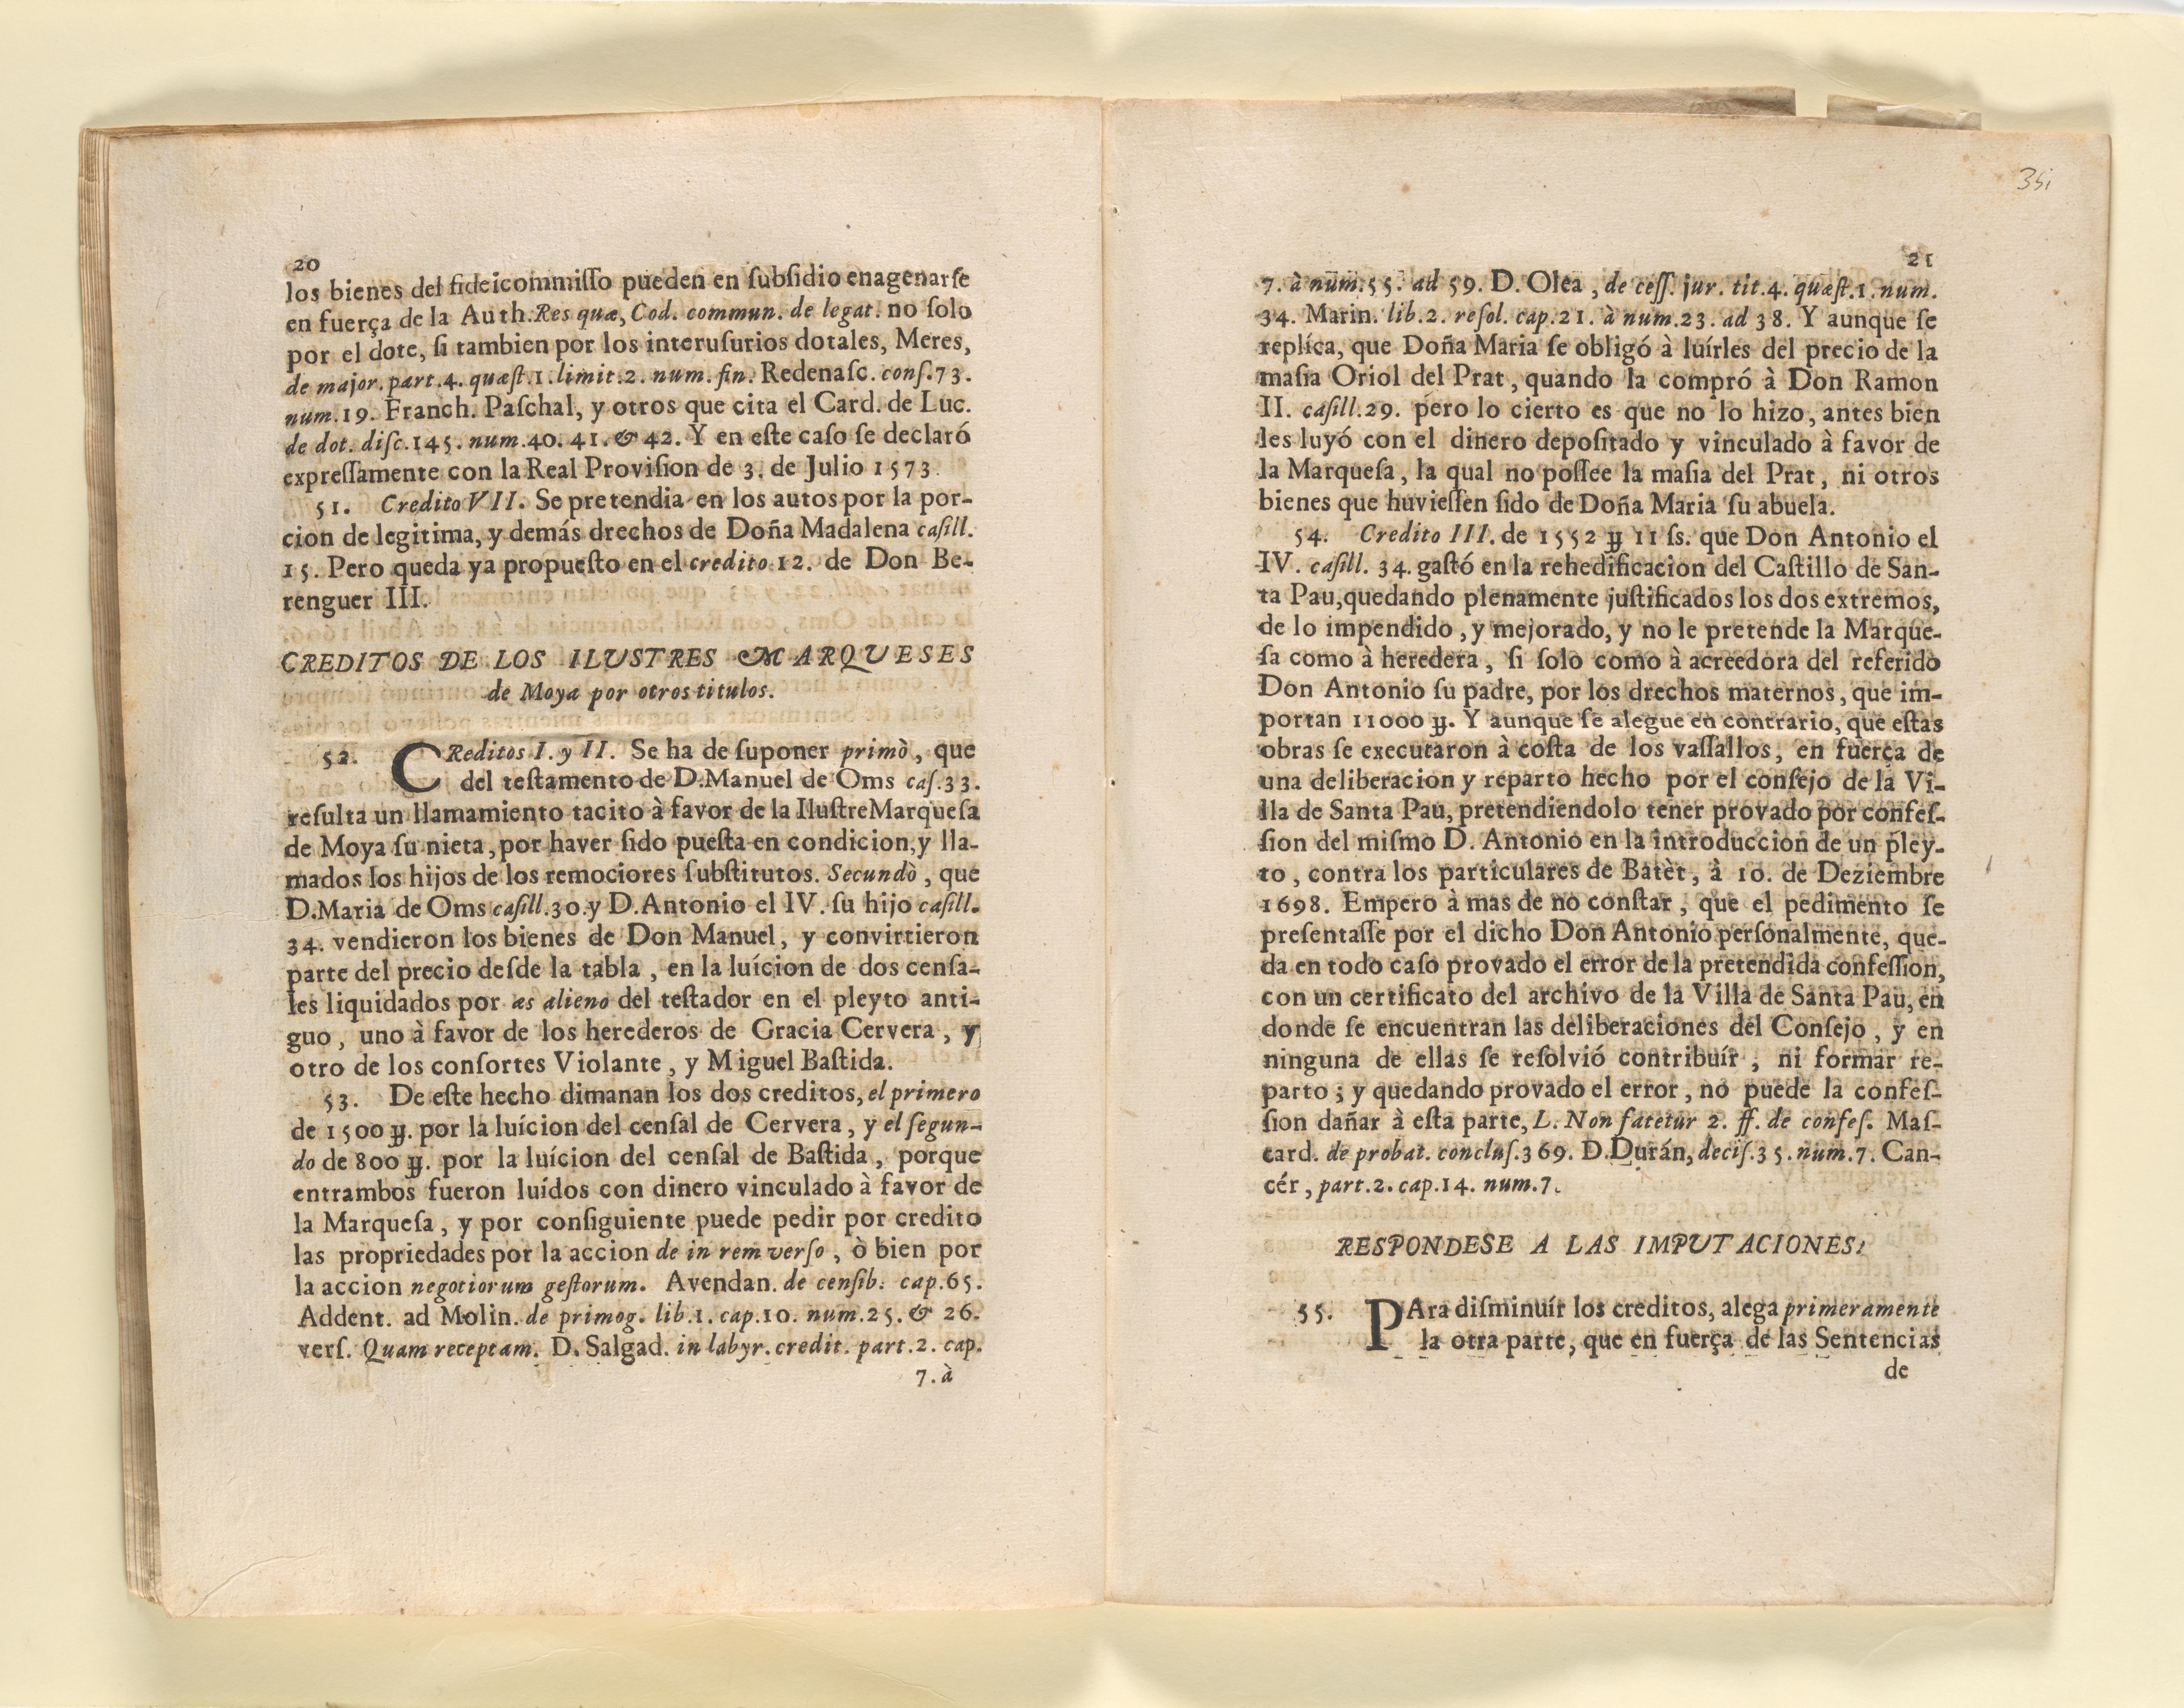 20
los bienes del fideicommiſſo pueden en ſubſidio enagenarſe
en fuerça de la Auth. Res quæ, Cod. commun. de legat. no ſolo
por el dote, ſi tambien por los interuſurios dotales, Meres,
de major. part. 4. quæſt. 1. limit. 2. num. fin. Redenaſc. conſ. 73.
num. 19. Franch. Paſchal, y otros que cita el Card. de Luc.
de dot. diſc. 145. num. 40. 41. & 42. Y en eſte caſo ſe declaró
expreſſamente con la Real Proviſion de 3. de Julio 1573.
51. Credito VII. Se pretendia en los autos por la por-
cion de legitima, y demás drechos de Doña Madalena caſill.
15. Pero queda ya propueſto en el credito 12. de Don Be-
renguer III.
CREDITOS DE LOS ILUSTRES MARQUESES
de Moya por otros titulos.
52. CReditos I. y II. Se ha de ſuponer primò, que
del teſtamento de D. Manuel de Oms caſ. 33.
reſulta un llamamiento tacito à favor de la Iluſtre Marqueſa
de Moya ſu nieta, por haver ſido pueſta en condicion, y lla-
mados los hijos de los remociores ſubſtitutos. Secundò, que
D. Maria de Oms caſill. 30. y D. Antonio el IV. ſu hijo caſill.
34. vendieron los bienes de Don Manuel, y convirtieron
parte del precio deſde la tabla, en la luícion de dos cenſa-
les liquidados por æs alieno del teſtador en el pleyto anti-
guo, uno à favor de los herederos de Gracia Cervera, y
otro de los conſortes Violante, y Miguel Baſtida.
53. De eſte hecho dimanan los dos creditos, el primero
de 1500 ℔. por la luícion del cenſal de Cervera, y el ſegun-
do de 800 ℔. por la luícion del cenſal de Baſtida, porque
entrambos fueron luídos con dinero vinculado à favor de
la Marqueſa, y por conſiguiente puede pedir por credito
las propriedades por la accion de in rem verſo, ò bien por
la accion negotiorum geſtorum. Avendan. de cenſib. cap. 65.
Addent. ad Molin. de primog. lib. 1. cap. 10. num. 25. & 26.
verſ. Quam receptam. D. Salgad. in labyr. credit. part. 2. cap.
7. à
35
21
7. à num. 55. ad 59. D. Olea, de ceſſ. jur. tit. 4. quæſt. 1. num.
34. Marin. lib. 2. reſol. cap. 21. à num. 23. ad 38. Y aunque ſe
replíca, que Doña Maria ſe obligó à luírles del precio de la
maſia Oriol del Prat, quando la compró à Don Ramon
II. caſill. 29. pero lo cierto es que no lo hizo, antes bien
les luyó con el dinero depoſitado y vinculado à favor de
la Marqueſa, la qual no poſſee la maſia del Prat, ni otros
bienes que huvieſſen ſido de Doña Maria ſu abuela.
54. Credito III. de 1552 ℔ 11 ſs. que Don Antonio el
IV. caſill. 34. gaſtó en la rehedificacion del Caſtillo de San-
ta Pau, quedando plenamente juſtificados los dos extremos,
de lo impendido, y mejorado, y no le pretende la Marque-
ſa como à heredera, ſi ſolo como à acreedora del referido
Don Antonio ſu padre, por los drechos maternos, que im-
portan 11000 ℔. Y aunque ſe alegue en contrario, que eſtas
obras ſe executaron à coſta de los vaſſallos, en fuerça de
una deliberacion y reparto hecho por el conſejo de la Vi-
lla de Santa Pau, pretendiendolo tener provado por confeſ-
ſion del miſmo D. Antonio en la introduccion de un pley-
to, contra los particulares de Batèt, à 10. de Deziembre
1698. Empero à mas de no conſtar, que el pedimento ſe
preſentaſſe por el dicho Don Antonio perſonalmente, que-
da en todo caſo provado el error de la pretendida confeſſion,
con un certificato del archivo de la Villa de Santa Pau, en
donde ſe encuentran las deliberaciones del Conſejo, y en
ninguna de ellas ſe reſolvió contribuír, ni formar re-
parto; y quedando provado el error, no puede la confeſ-
ſion dañar à eſta parte, L. Non fatetur 2. ff. de confeſ. Maſ-
card. de probat. concluſ. 369. D. Durán, deciſ. 35. num. 7. Can-
cér, part. 2. cap. 14. num. 7.
RESPONDESE A LAS IMPUTACIONES.
55. PAra diſminuír los creditos, alega primeramente
la otra parte, que en fuerça de las Sentencias
de